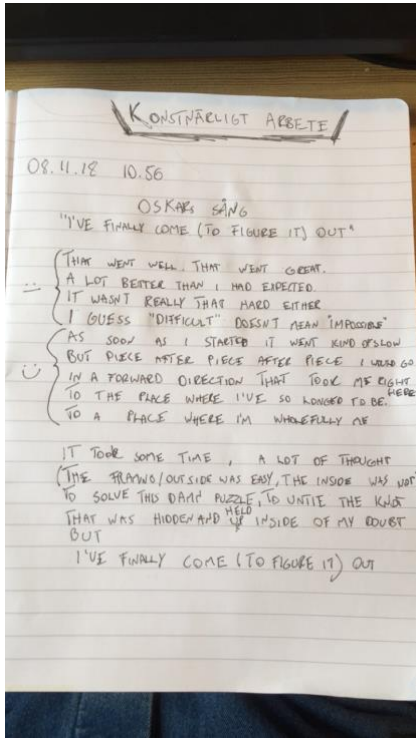 KONSTNÄRLIGT ARBETE
08.11.18 10.56
OSKARS SÅNG
"I'VE FINALLY COME (TO FIGURE IT) OUT"
THAT WENT WELL. THAT WENT GREAT.
A LOT BETTER THAN I HAD EXPECTED.
IT WASN'T REALLY THAT HARD EITHER
I GUESS "DIFFICULT" DOESN'T MEAN "IMPOSSIBLE"
AS SOON AS I STARTED IT WENT KIND OF SLOW
BUT PIECE AFTER PIECE AFTER PIECE I WOULD GO
IN A FORWARD DIRECTION THAT TOOK ME RIGHT HERE
TO THE PLACE WHERE I'VE SO LONGED TO BE.
TO A PLACE WHERE I'M WHOLEFULLY ME
IT TOOK SOME TIME, A LOT OF THOUGHT
(THE /OUTSIDE WAS EASY, THE INSIDE WAS NOT
TO SOLVE THIS DAMN PUZZLE, TO UNTIE THE KNOT
THAT WAS HIDDEN AND HELD UP INSIDE OF MY DOUBT
BUT
I'VE FINALLY COME (TO FIGURE IT) OUT